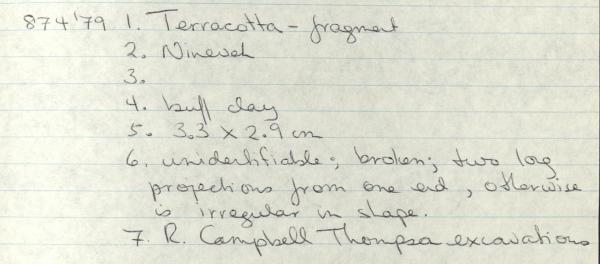 874'79 1. Terracotta - fragment
2. Nineveh
3.
4. buff clay
5. 3.3 x 2.9 cm
6. unidentifiable; broken; two long
projections from one end, otherwise
is irregular in shape.
7. R. Campbell Thompson excavations